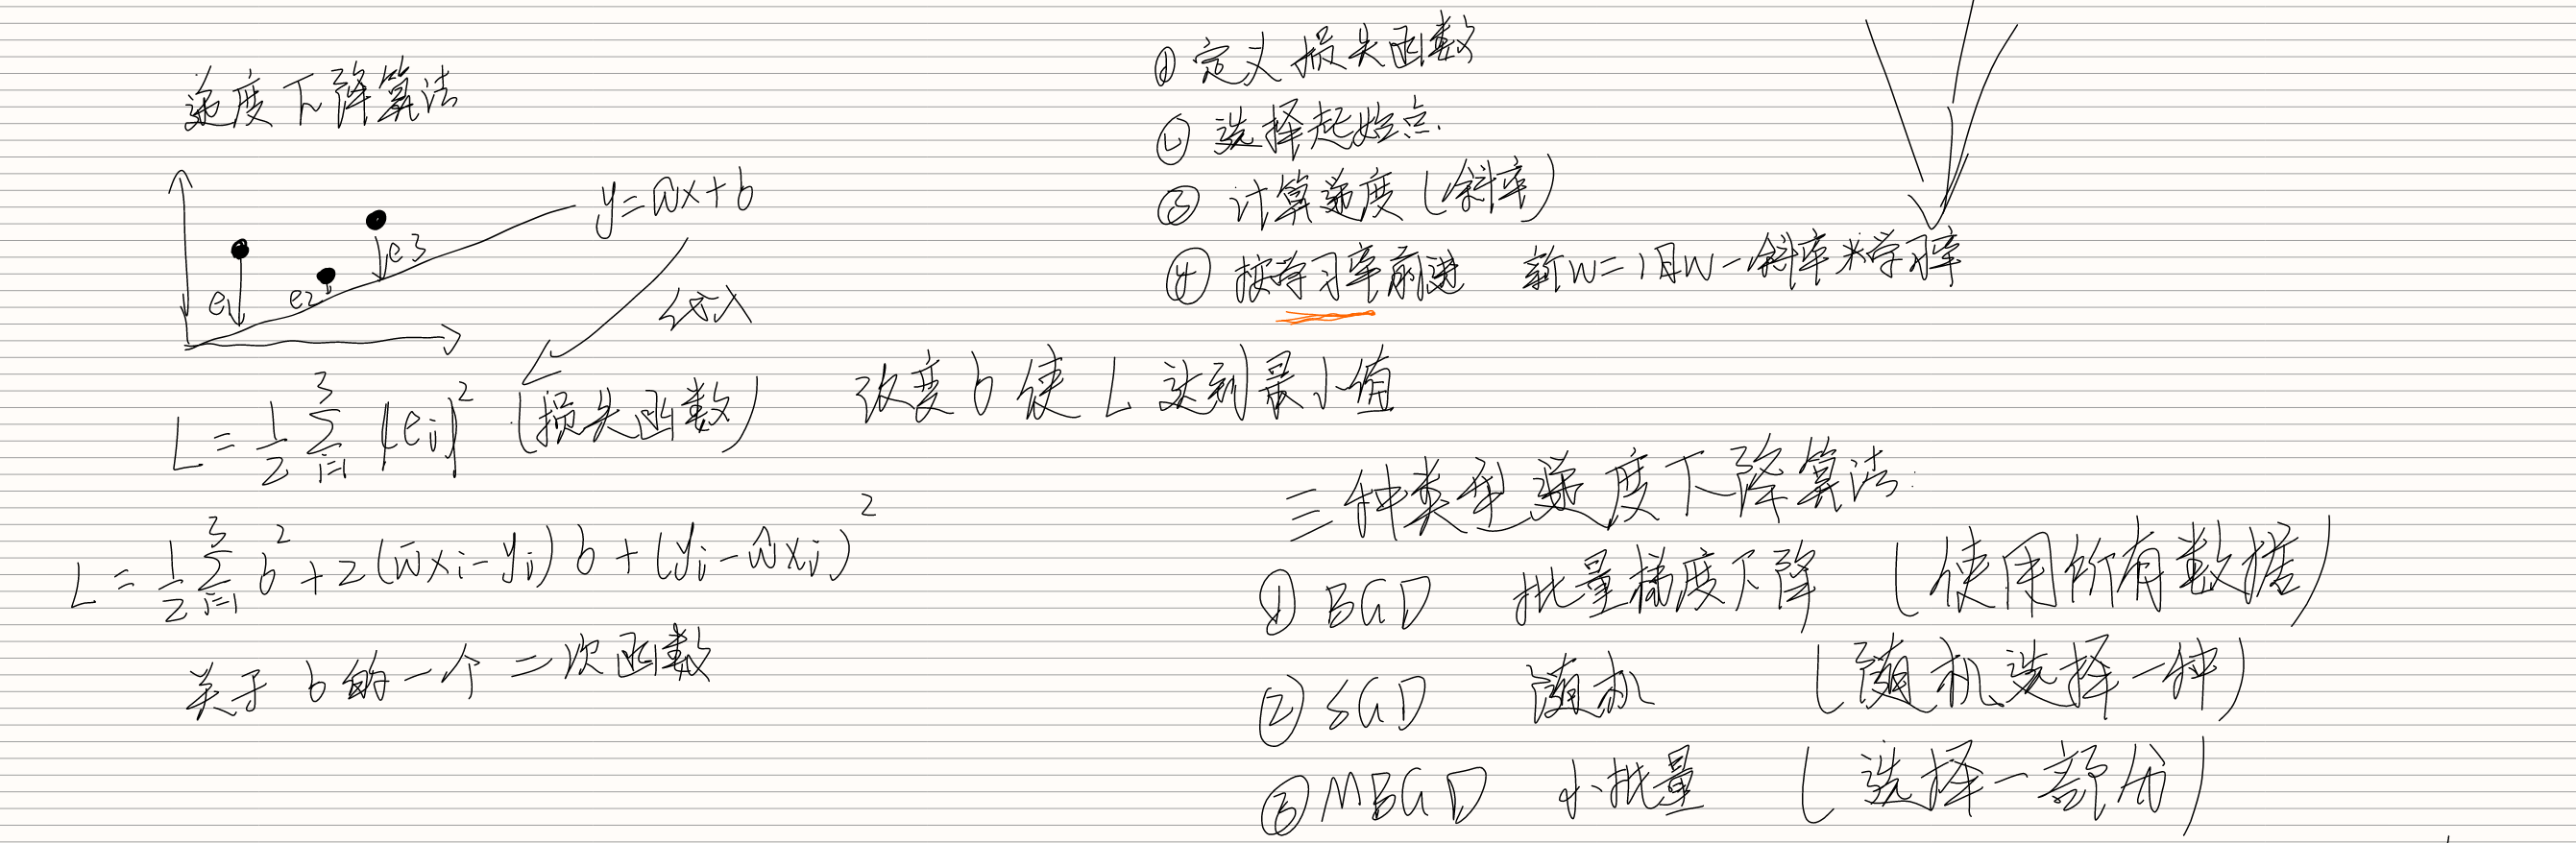 递度下降算法
y=ŵx+b
e1
e2
e3
代入
L=1/2 3∑i=1 (ei)² (损失函数)
改变b使L达到最小值
L=1/2 3∑i=1 b²+2(ŵxi-yi)b+(yi-ŵxi)²
关于b的一个二次函数
①定义损失函数
②选择起始点.
③计算递度(斜率)
④按学习率前进 新w=旧w-斜率*学习率
三种类型递度下降算法.
①BGD 批量梯度下降 (使用所有数据)
②SGD 随机 (随机选择一种)
③MBGD 小批量 (选择一部份)